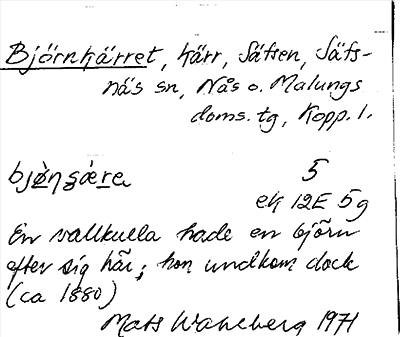 Björnkärret, kärr, Säfsen, Säfs-
näs sn, Nås o. Malungs
doms. tg, Kopp. l.
bjø̀ṇṣæ̀re 5
ek 12E 5g
En vallkulla hade en björn
efter sig här; hon undkom dock
(ca 1880)
Mats Wahlberg 1971